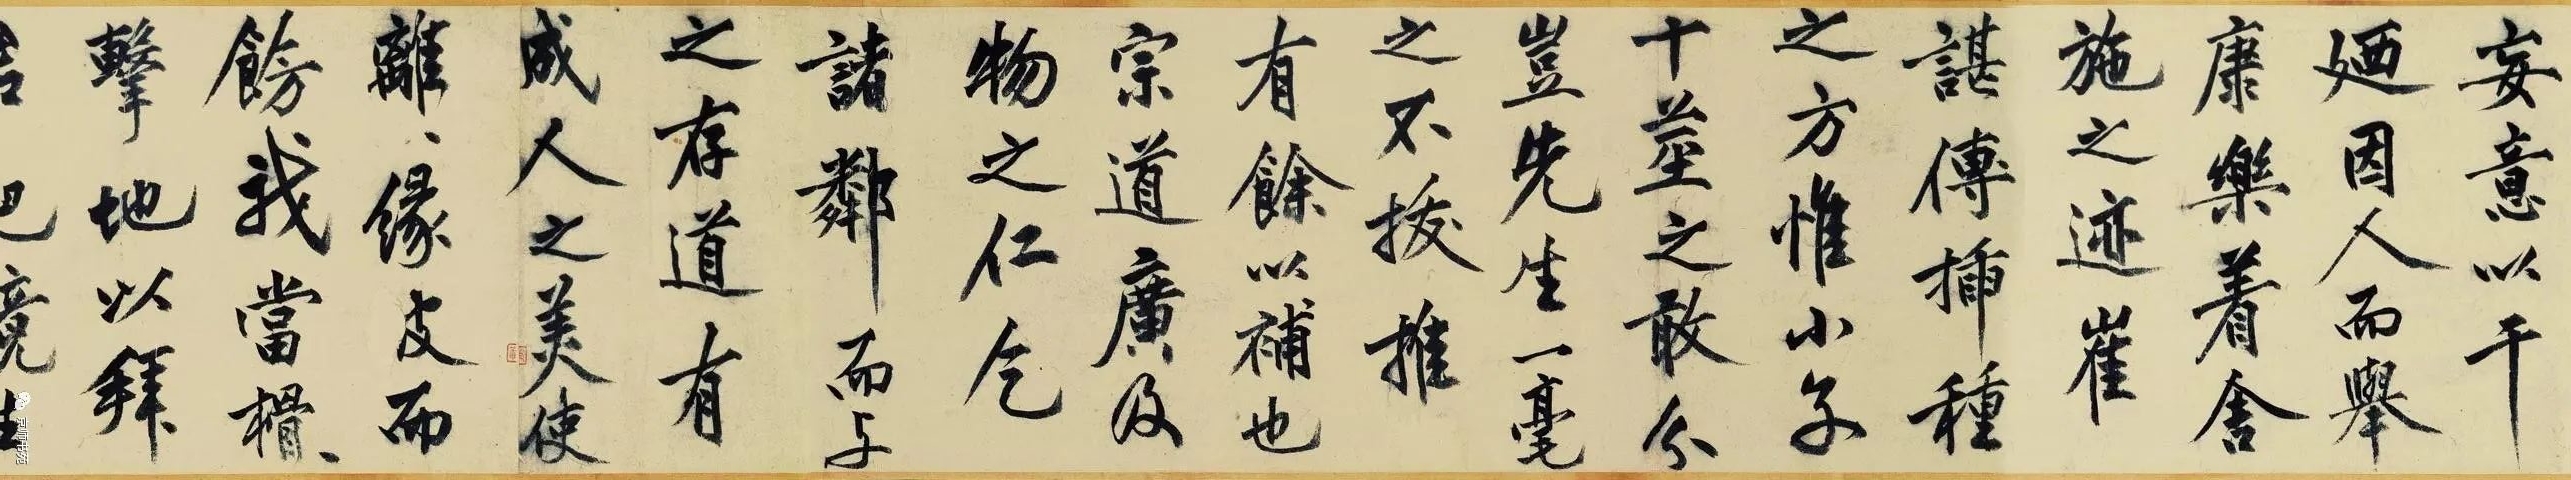 妄意以干
廼因人而舉
康樂着舍
施之迹崔
諶傳揷種
之方惟小子
十莖之敢分
豈先生一毫
之不拔推
有餘以補也
宗道廣及
物之仁乞
諸鄰而与
之存道有
成人之美使
離、緣皮而
餝我當榾、
擊地以拜